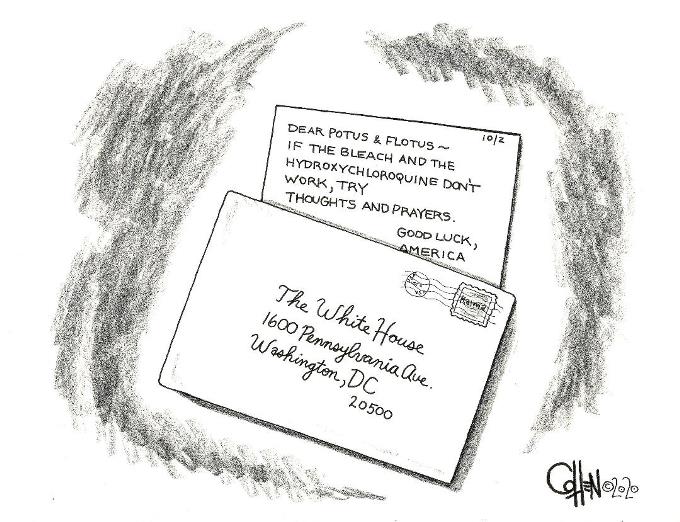 10/2
DEAR POTUS & FLOTUS ~
IF THE BLEACH AND THE
HYDROXYCHLOROQUINE DON'T
WORK, TRY
THOUGHTS AND PRAYERS.
GOOD LUCK,
AMERICA
KARMA
The White House
1600 Pennsylvania Ave.
Washington, DC
20500
COHEN ©2020